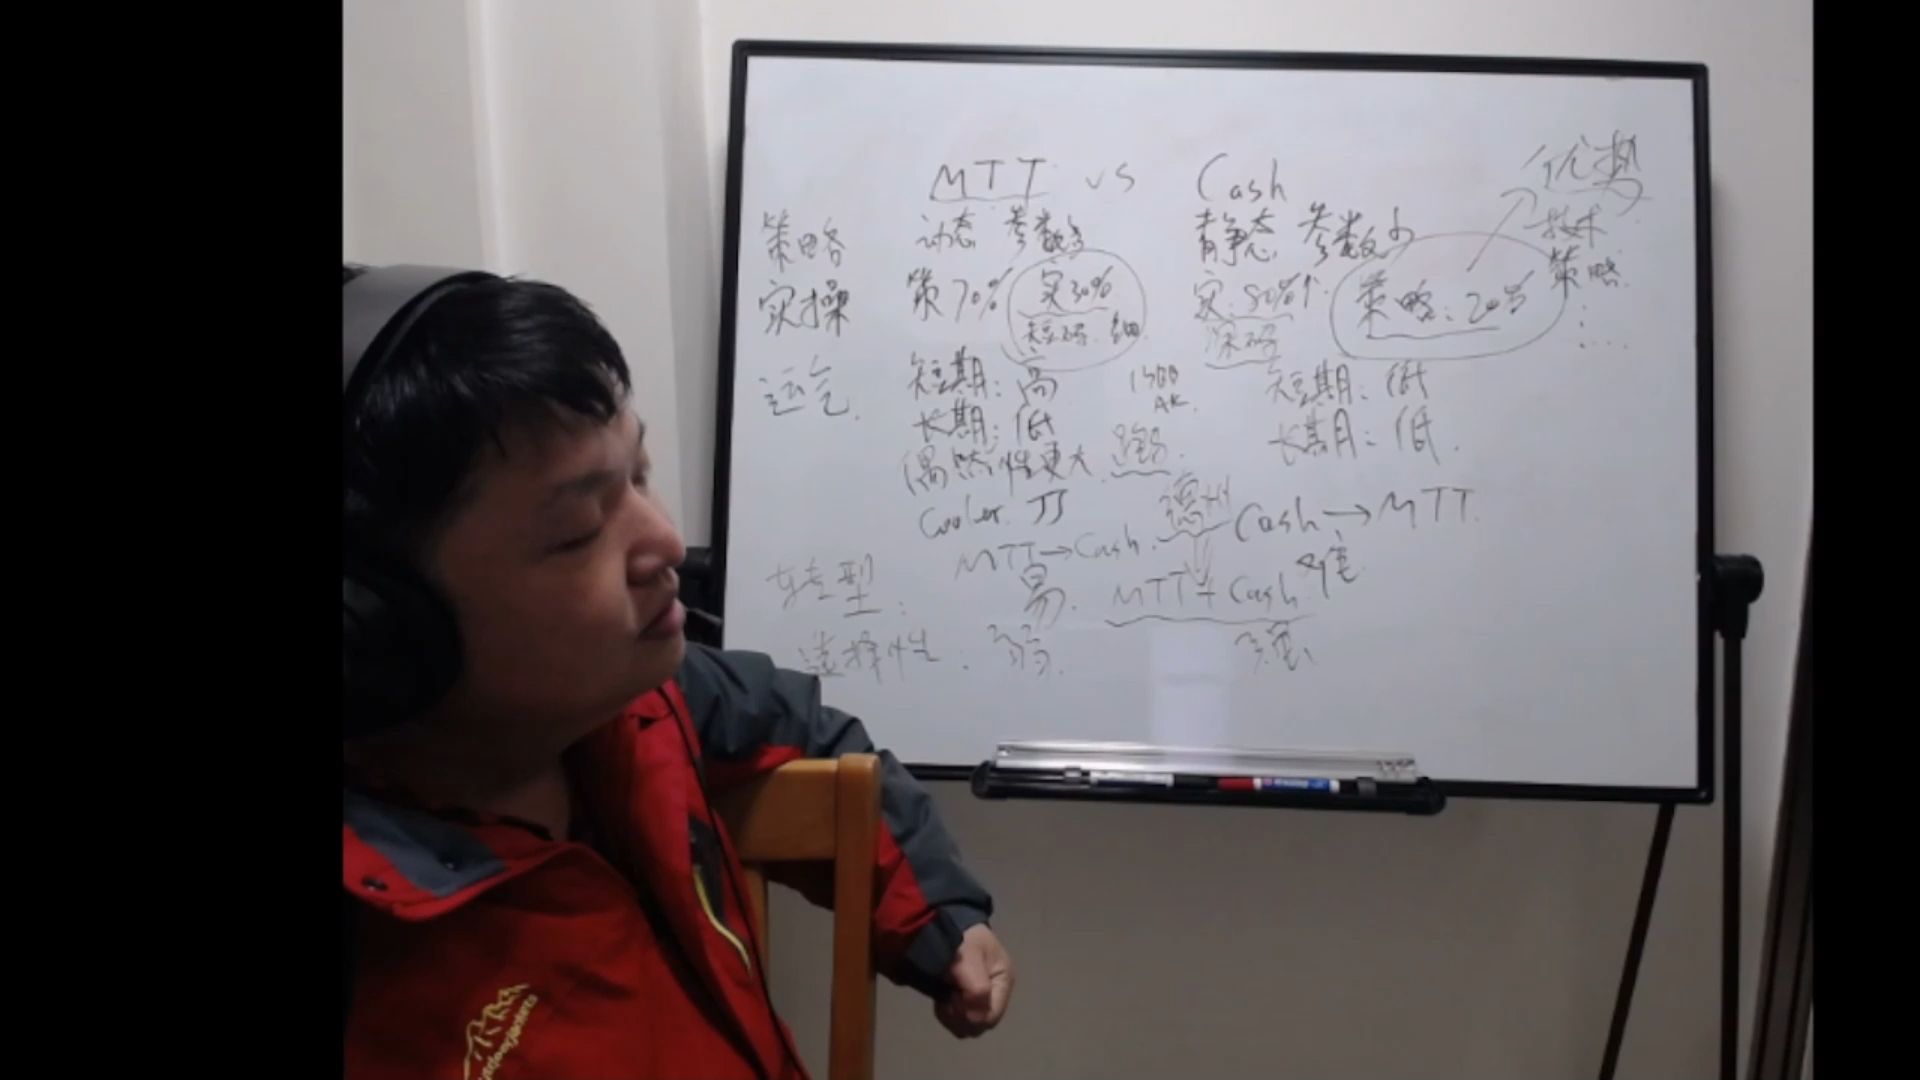 MTT vs Cash
优势
策略 动态 参数多 静态 参数少
技术
实操 策70% 实30% 实:80%个 策略:20%
策略
短码 细 深码
运气 短期:高 AK 短期:低
长期:低 长期:低
偶然性更大
Cooler JJ 德州
MTT→Cash Cash→MTT
转型: 易 MTT+Cash 难
选择性:弱 强